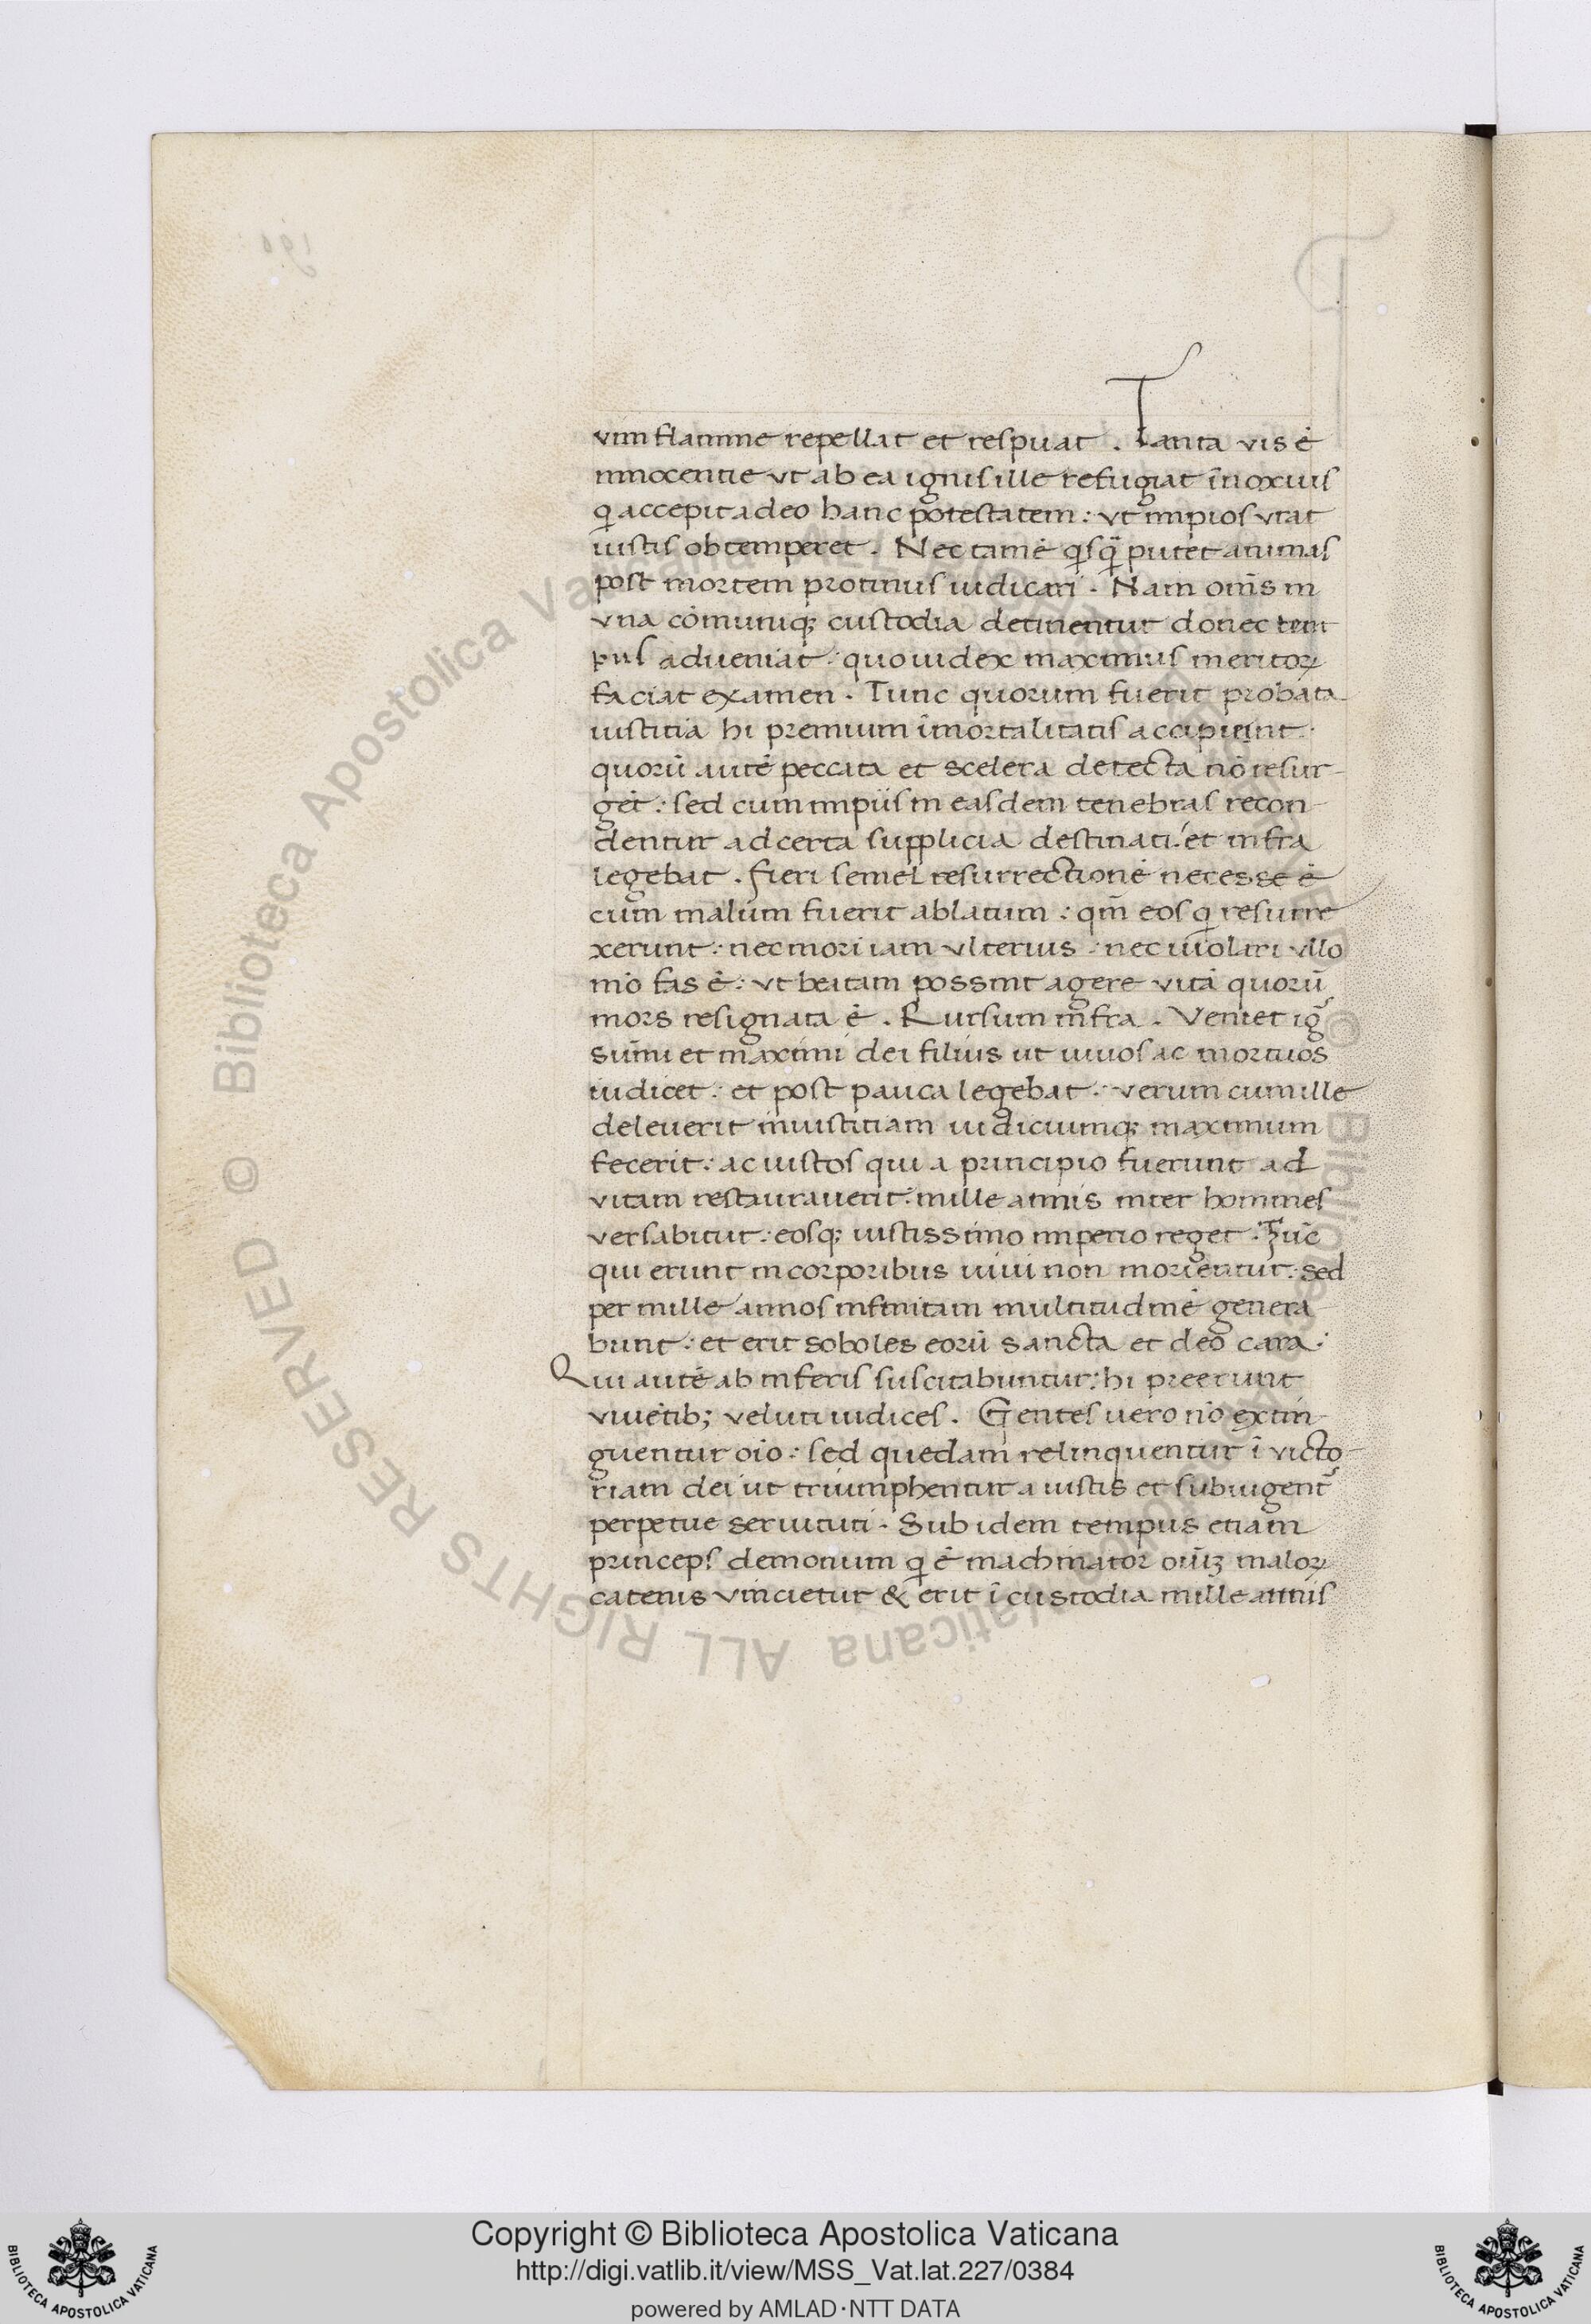 vim flamme repellat et respuat . Tanta vis ē
innocentie vt ab ea ignis ille refugiat īnoxius
q̄ accepit a deo hanc potestatem : vt impios vrat
iustis obtemperet . Nec tamē q̄sq̄ putet animas
post mortem protinus iudicari . Nam om̄s in
vna cōmuniq; custodia detinentur donec tem
pus adueniat : quo iudex maximus meritoꝝ
faciat examen . Tunc quorum fuerit probata
iustitia hi premium īmortalitatis accipient :
quorū autē peccata et scelera detecta nō resur-
gēt : sed cum impiis in easdem tenebras recon-
dentur ad certa supplicia destinati : et infra
legebat . fieri semel resurrectionē necesse ē
cum malum fuerit ablatum : qm̄ eos q̄ resurre
xerunt : nec mori iam vlterius : nec uiolari vllo
mō fas ē : vt beatam possint agere vitā quorū
mors resignata ē . Rursum infra . Veniet iḡ
sūmi et maximi dei filius ut uiuos ac mortuos
iudicet : et post pauca legebat : verum cum ille
deleuerit iniustitiam iudiciumq; maximum
fecerit : ac iustos qui a principio fuerunt ad
vitam restaurauerit : mille annis inter homines
versabitur : eosq; iustissimo imperio reget . Tūc
qui erunt in corporibus uiui non morientur : sed
per mille annos infinitam multitudinē genera
bunt : et erit soboles eorū sancta et deo cara :
Qui autē ab inferis suscitabuntur : hi preerunt
viuētib; veluti iudices . Gentes uero nō extin-
guentur oīo : sed quedam relinquentur ī victo-
riam dei ut triumphentur a iustis et subiugent᷑
perpetue seruituti . Sub idem tempus etiam
princeps demonum q̄ ē machinator oīuꝫ maloꝝ
catenis vincietur & erit ī custodia mille annis
Copyright © Biblioteca Apostolica Vaticana
http://digi.vatlib.it/view/MSS_Vat.lat.227/0384
powered by AMLAD·NTT DATA
BIBLIOTECA APOSTOLICA VATICANA
BIBLIOTECA APOSTOLICA VATICANA
© Biblioteca Apostolica Vaticana ALL RIGHTS RESERVED
© Biblioteca Apostolica Vaticana ALL RIGHTS RESERVED